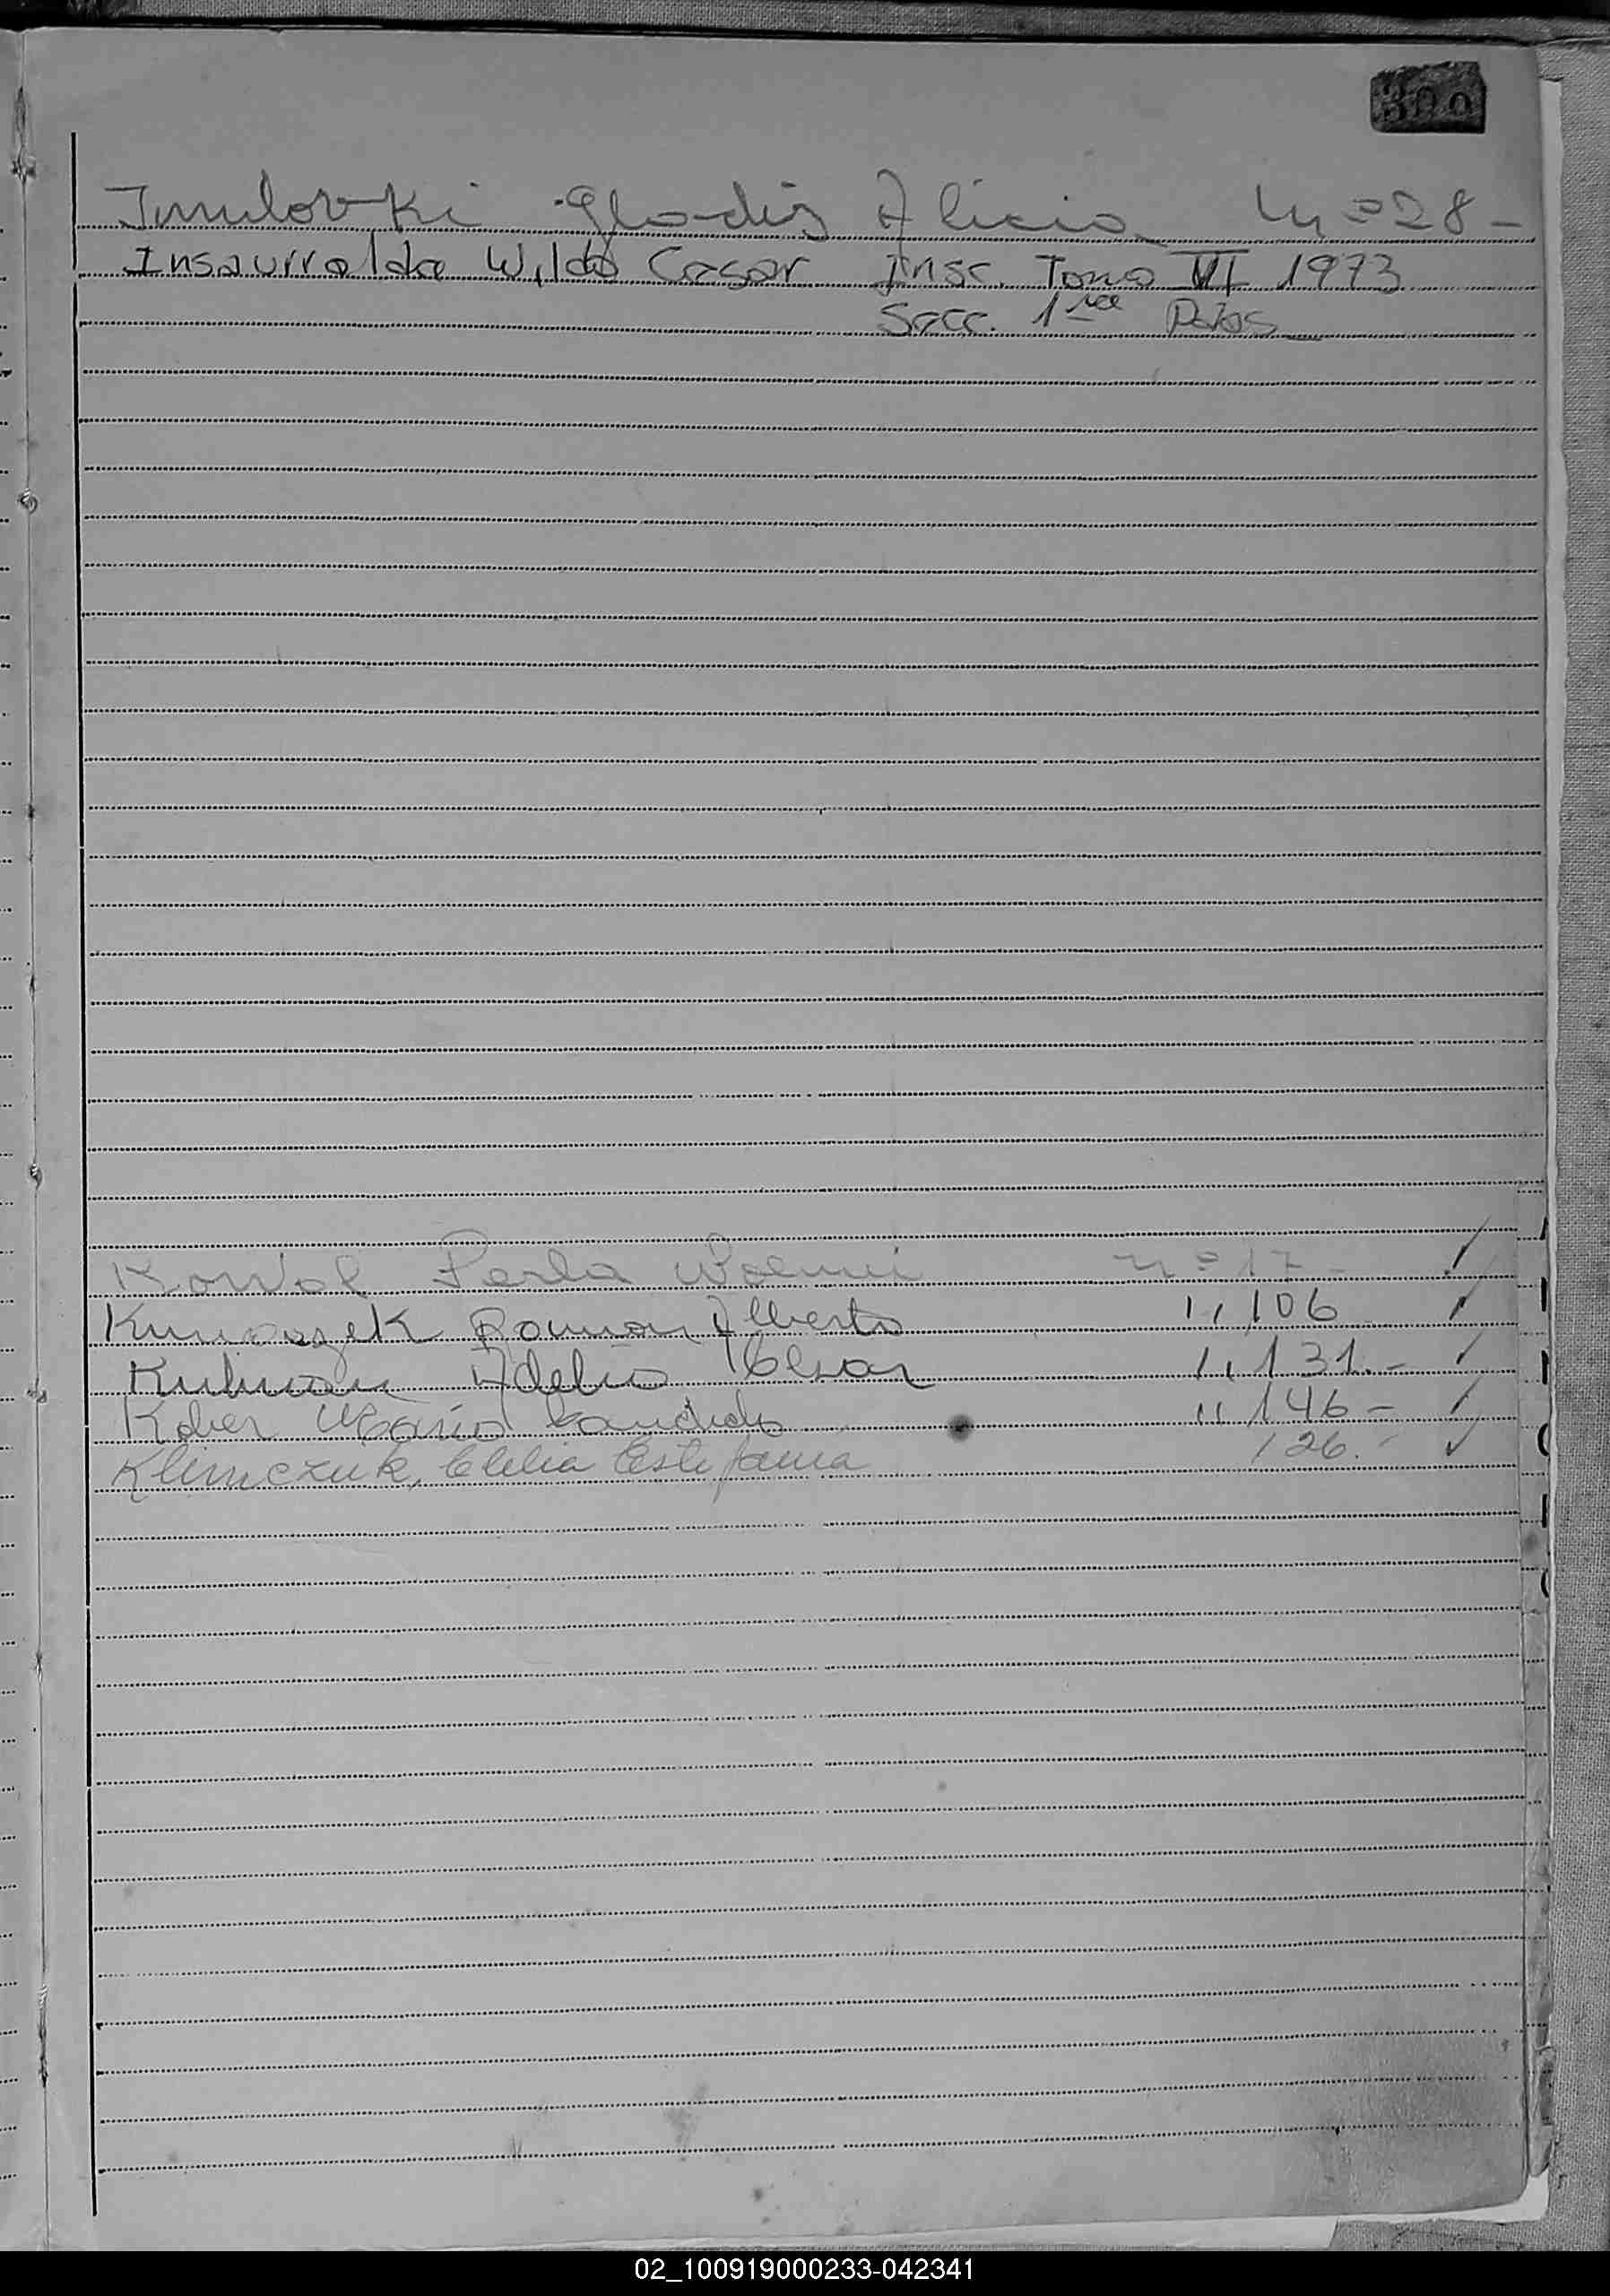 300
Imulovki Gladis Alicia nº 28 -
Insaurralde Wildo Cesar Insc. Tomo VI 1973
Secc. 1ra Pdas
Kowal Perla Noemi nº 17 - ✓
Ramon Alberto " 106 ✓
Kuhman Adelio Cesar " 131.- ✓
Kober Mario Candido " 146 - ✓
Klimczuk, Clelia Estefania 126. - ✓
02_100919000233-042341